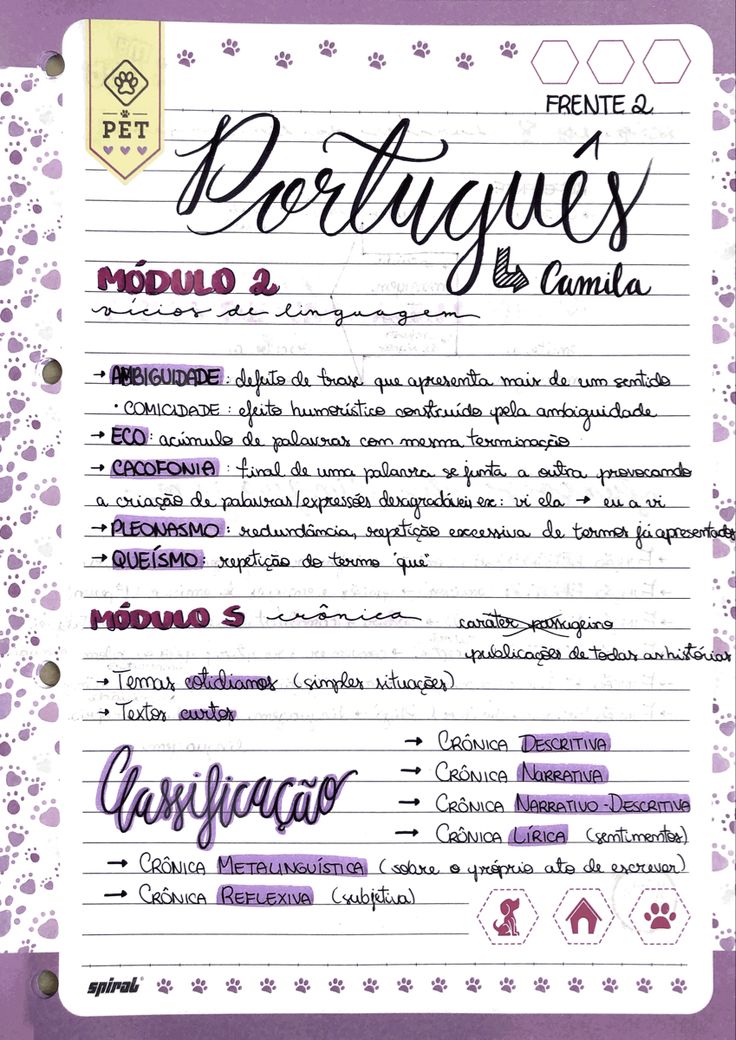 PET
FRENTE 2
Português
Camila
MÓDULO 2
vícios de linguagem
→ AMBIGUIDADE : defeito de frase que apresenta mais de um sentido
· COMICIDADE : efeito humorístico construído pela ambiguidade
→ ECO : acúmulo de palavras com mesma terminação
→ CACOFONIA : final de uma palavra se junta a outra provocando
a criação de palavras/expressões desagradáveis ex: vi ela → eu a vi
→ PLEONASMO : redundância, repetição excessiva de termos já apresentados
→ QUEÍSMO : repetição do termo "que"
MÓDULO 5 crônica
caráter passageiro
publicações de todas as histórias
→ Temas cotidianos (simples situações)
→ Textos curtos
Classificação
→ CRÔNICA DESCRITIVA
→ CRÔNICA NARRATIVA
→ CRÔNICA NARRATIVO-DESCRITIVA
→ CRÔNICA LÍRICA (sentimentos)
→ CRÔNICA METALINGUÍSTICA (sobre o próprio ato de escrever)
→ CRÔNICA REFLEXIVA (subjetiva)
spiral